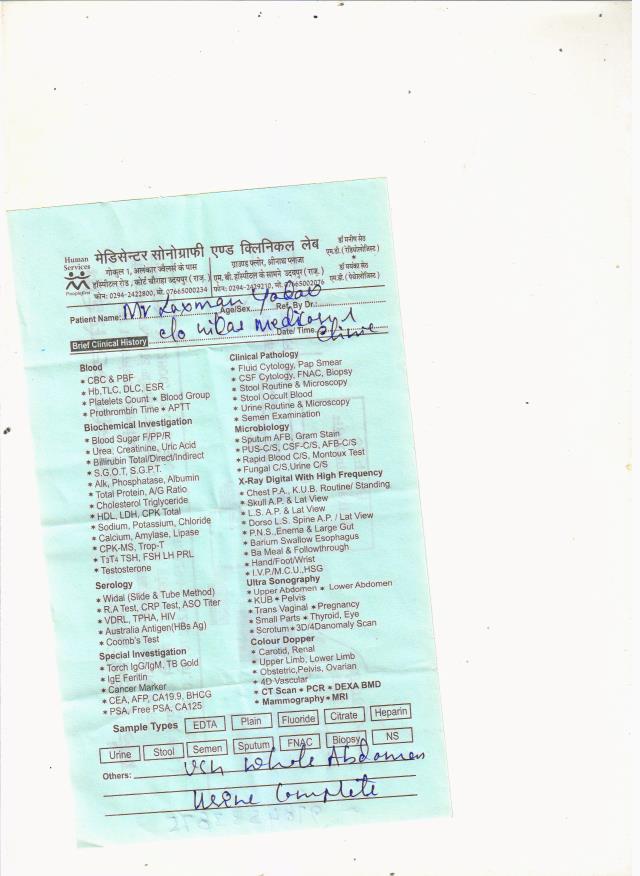 Human
Services
Peoplefirst
मेडिसेन्टर सोनोग्राफी एण्ड क्लिनिकल लेब
गोकुल 1, अलंकार ज्वैलर्स के पास
हॉस्पीटल रोड, कोर्ट चौराहा उदयपुर (राज.)
फोन: 0294-2422800, मो. 07665000234
ग्राउण्ड फ्लोर, श्रीनाथ प्लाजा
एम.बी. हॉस्पीटल के सामने उदयपुर (राज.)
फोन: 0294-2429210, मो. 07665002076
डॉ मनीष सेठ
एम.डी. (रेडियोलोजिस्ट)
एम.डी. (पेथोलोजिस्ट)
Patient Name: Mr Laxman Yadav Age/Sex Ref. By Dr.:
c/o Date/ Time Clinic
Brief Clinical History
Blood
* CBC & PBF
* Hb,TLC, DLC, ESR
* Platelets Count * Blood Group
* Prothrombin Time * APTT
Biochemical Investigation
* Blood Sugar F/PP/R
* Urea, Creatinine, Uric Acid
* Billirubin Total/Direct/Indirect
* S.G.O.T, S.G.P.T.
* Alk, Phosphatase, Albumin
* Total Protein, A/G Ratio
* Cholesterol Triglyceride
* HDL, LDH, CPK Total
* Sodium, Potassium, Chloride
* Calcium, Amylase, Lipase
* CPK-MS, Trop-T
* T3T4 TSH, FSH LH PRL
* Testosterone
Serology
* Widal (Slide & Tube Method)
* R.A Test, CRP Test, ASO Titer
* VDRL, TPHA, HIV
* Australia Antigen(HBs Ag)
* Coomb's Test
Special Investigation
* Torch IgG/IgM, TB Gold
* IgE Feritin
* Cancer Marker
* CEA, AFP, CA19.9, BHCG
* PSA, Free PSA, CA125
Clinical Pathology
* Fluid Cytology, Pap Smear
* CSF Cytology, FNAC, Biopsy
* Stool Routine & Microscopy
* Stool Occult Blood
* Urine Routine & Microscopy
* Semen Examination
Microbiology
* Sputum AFB, Gram Stain
* PUS-C/S, CSF-C/S, AFB-C/S
* Rapid Blood C/S, Montoux Test
* Fungal C/S,Urine C/S
X-Ray Digital With High Frequency
* Chest P.A., K.U.B. Routine/ Standing
* Skull A.P. & Lat View
* L.S. A.P. & Lat View
* Dorso L.S. Spine A.P. / Lat View
* P.N.S.,Enema & Large Gut
* Barium Swallow Esophagus
* Ba Meal & Followthrough
* Hand/Foot/Wrist
* I.V.P/M.C.U.,HSG
Ultra Sonography
* Upper Abdomen * Lower Abdomen
* KUB * Pelvis
* Trans Vaginal * Pregnancy
* Small Parts * Thyroid, Eye
* Scrotum * 3D/4Danomaly Scan
Colour Dopper
* Carotid, Renal
* Upper Limb, Lower Limb
* Obstetric,Pelvis, Ovarian
* 4D Vascular
* CT Scan * PCR * DEXA BMD
* Mammography * MRI
Sample Types EDTA Plain Fluoride Citrate Heparin
Urine Stool Semen Sputum FNAC Biopsy NS
Others: whole Abdomen
Urine Complete